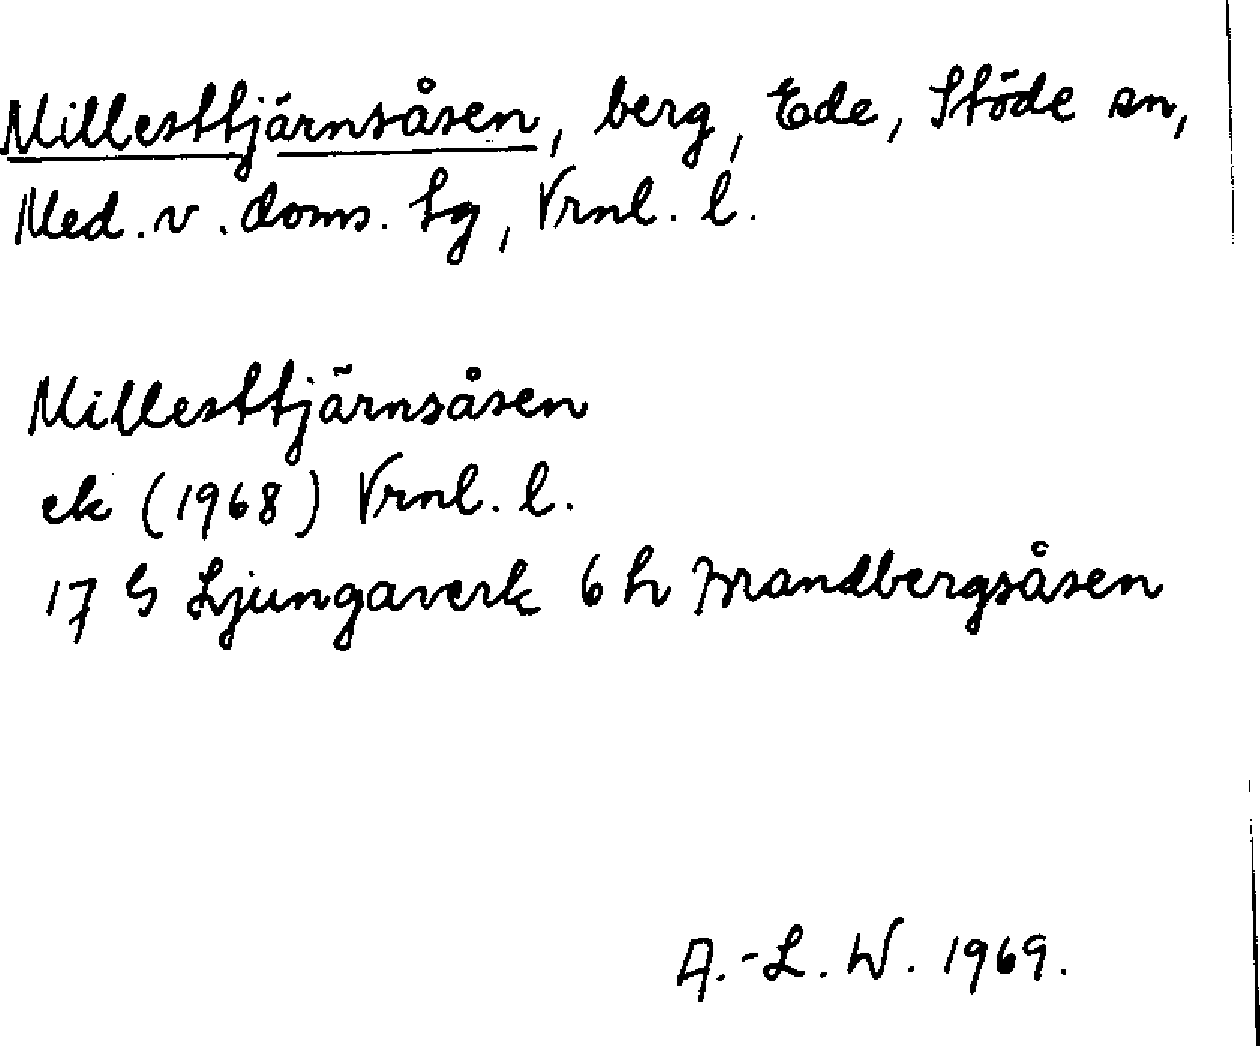 Millesttjärnsåsen, berg, Ede, Stöde sn,
Med. v. doms. lg, Vrnl. l.
Millesttjärnsåsen
ek (1968) Vrnl. l.
17 G Ljungaverk 6 h Brandbergsåsen
A.-L. W. 1969.